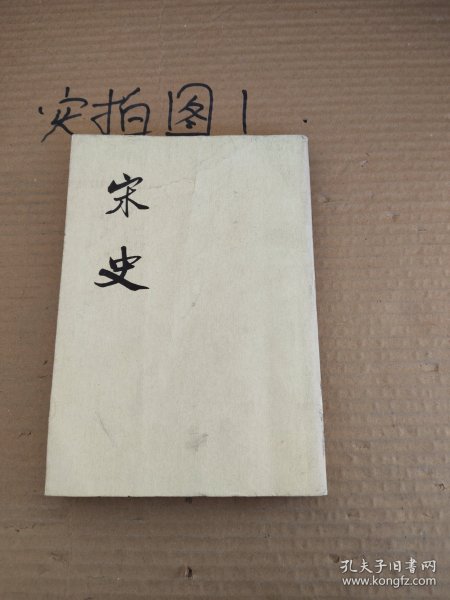 实拍图1.
宋
史
孔夫子旧书网
www.kongfz.com